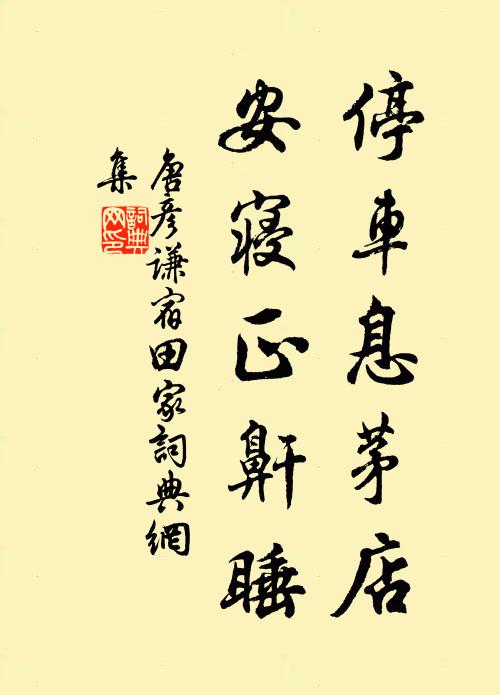 停車息茅店
安寝正鼾睡
唐彦謙宿田家詞典網
集
詞典
网印